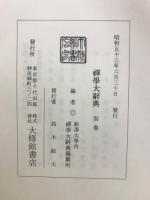 昭和五十三年六月二十日 發行
禪學大辭典 別卷
編者 © 駒澤大學內
禪學大辭典編纂所
發行者 鈴木敏夫
發行所
東京都千代田區
神田錦町三ノ二四
株式會社 大修館書店